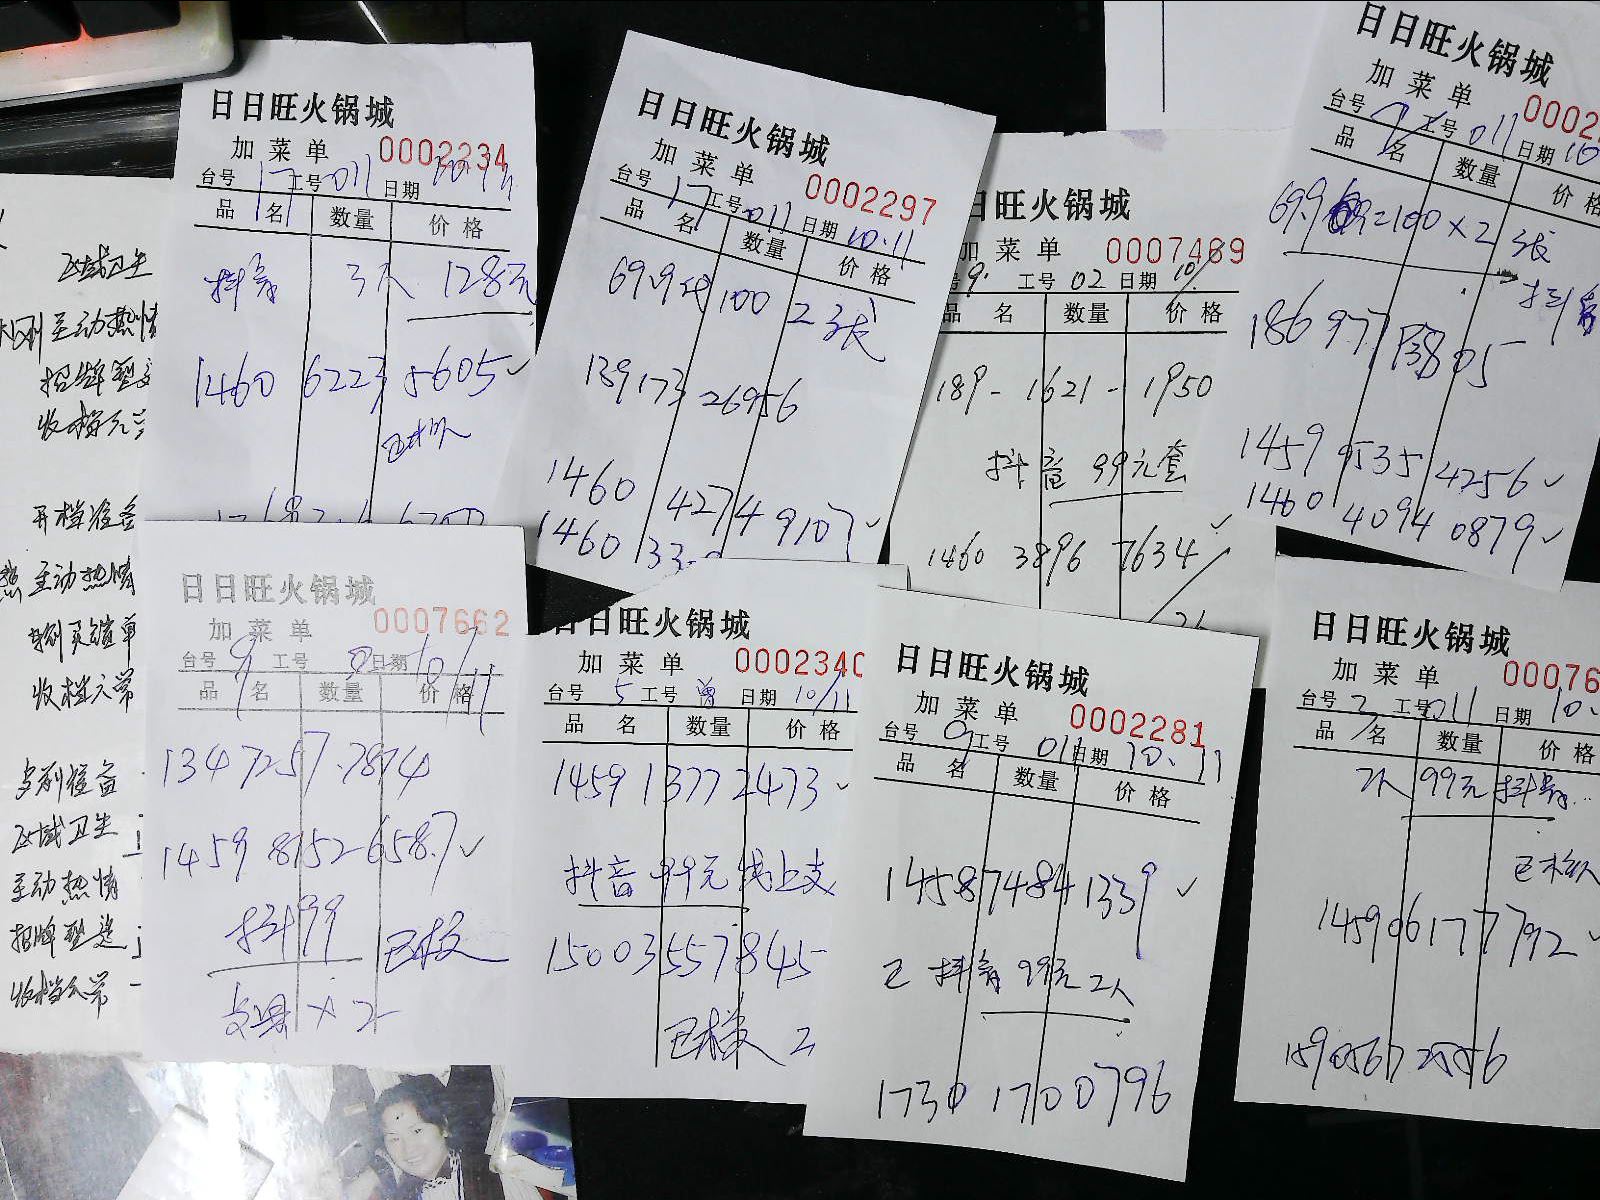 日日旺火锅城
加菜单 0002234
台号 17 工号 011 日期
品名 数量 价格
抖音 3人 128元
1460 6223 5605 ✓
日日旺火锅城
加菜单 0002297
台号 17 工号 011 日期 10.11
品名 数量 价格
69.9代 100 2张
139173 26956
1460 4274 9107 ✓
1460
日旺火锅城
加菜单 0007469
9. 工号 02 日期 10/
品名 数量 价格
189-1621-1950
抖音 99元套
1460 3896 7634 ✓
日日旺火锅城
加菜单 0002
台号 工号 011 日期 10
品名 数量 价格
100×2张
抖音
1459 9535 4256 ✓
1460 4094 0879 ✓
日日旺火锅城
加菜单 0007662
台号 9 工号 日期 10/11
品名 数量 价格
1347257.7874
1459 8152 6587 ✓
抖99
已核
×2
日日旺火锅城
加菜单 0002340
台号 5 工号 曾 日期 10/11
品名 数量 价格
1459 1377 2473 ✓
抖音 99元 线上支
15003557845
已核 2
日日旺火锅城
加菜单 0002281
台号 9 工号 011 日期 10.11
品名 数量 价格
1458 7484 1339 ✓
已 抖音 99元 2人
1730 1710 0796
日日旺火锅城
加菜单 00076
台号 2 工号 011 日期 10.
品名 数量 价格
2人 99元 抖音
已核
1459 0617 7792 ✓
15905672556
区域卫生
主动热情
招牌型
收档
开档准备
主动热情
买单
收档
准备
区域卫生
主动热情
招牌型
收档